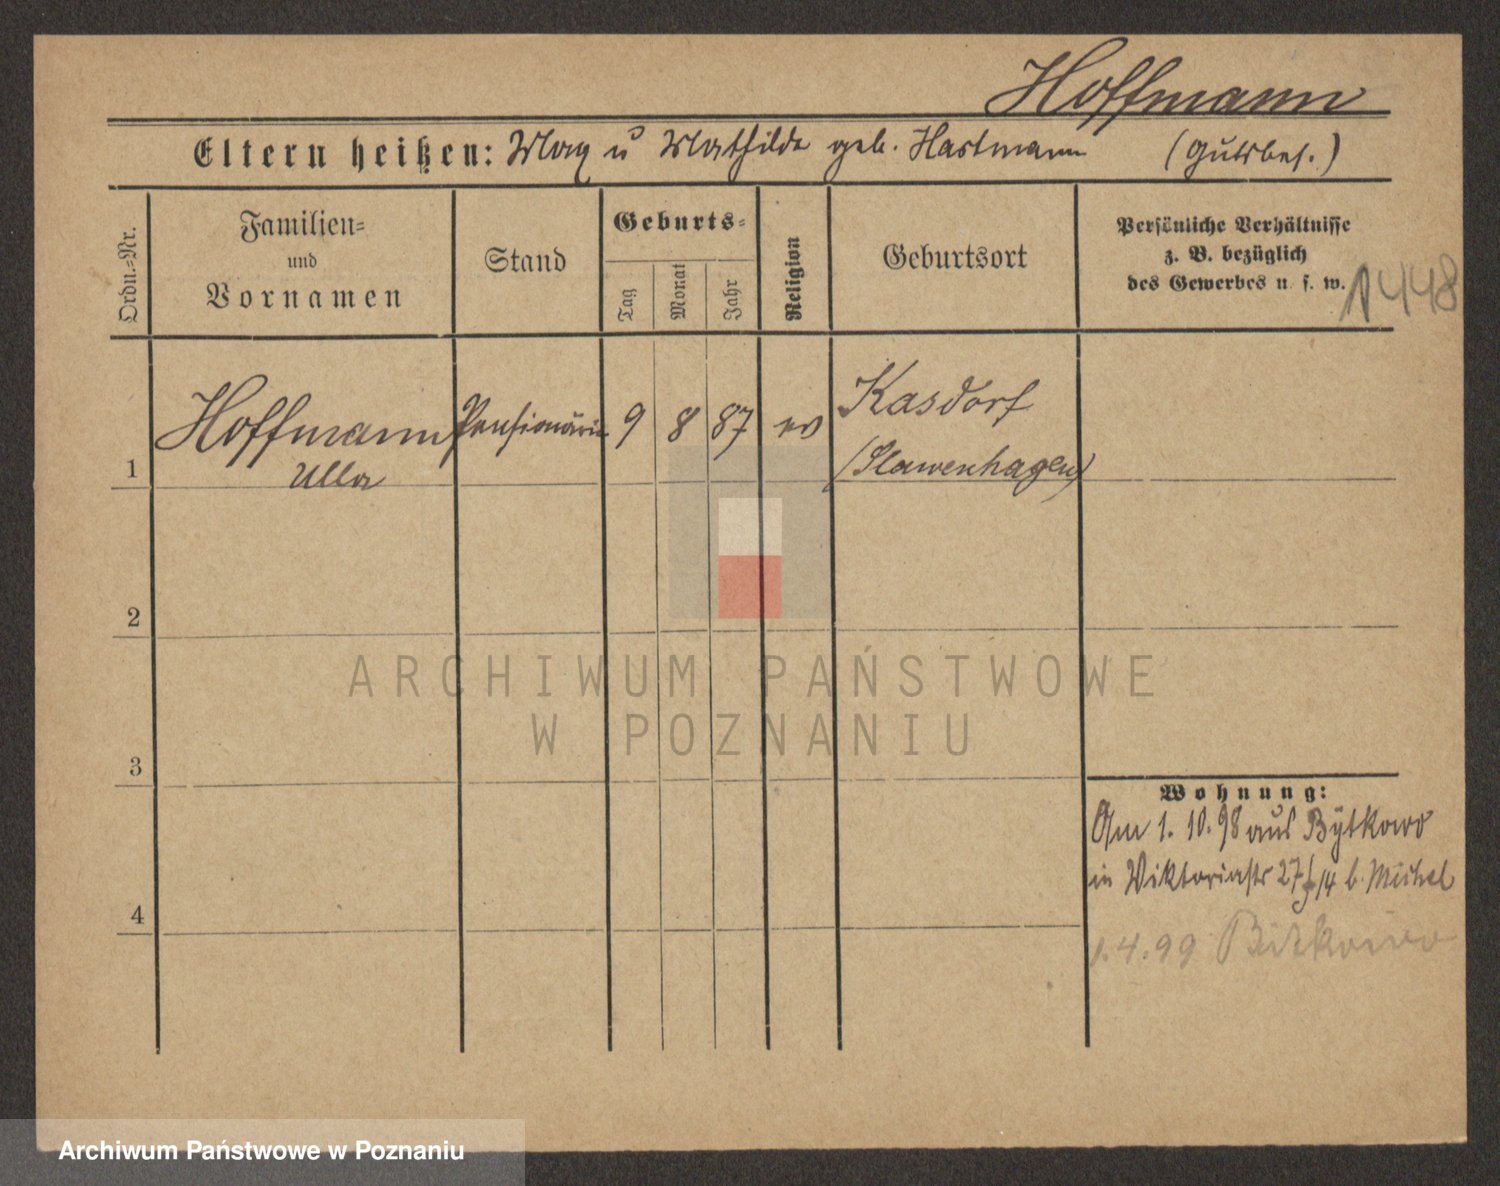 Hoffmann
Eltern heißen: Max u Mathilde geb. Hartmann (Gutsbes.)
Ordn.-Nr.
Familien- und Vornamen
Stand
Geburts-
Tag
Monat
Jahr
Religion
Geburtsort
Persönliche Verhältnisse
z. B. bezüglich
des Gewerbes u. s. w.
1448
1
Hoffmann
Ulla
Pensionärin
9
8
87
ev
Kasdorf
(Slawenhagen)
2
3
4
Wohnung:
Am 1. 10. 98 aus Bytkowo
in Viktoriastr 27 14 b. Michel
1.4.99 Bitkowo
ARCHIWUM PAŃSTWOWE
W POZNANIU
Archiwum Państwowe w Poznaniu